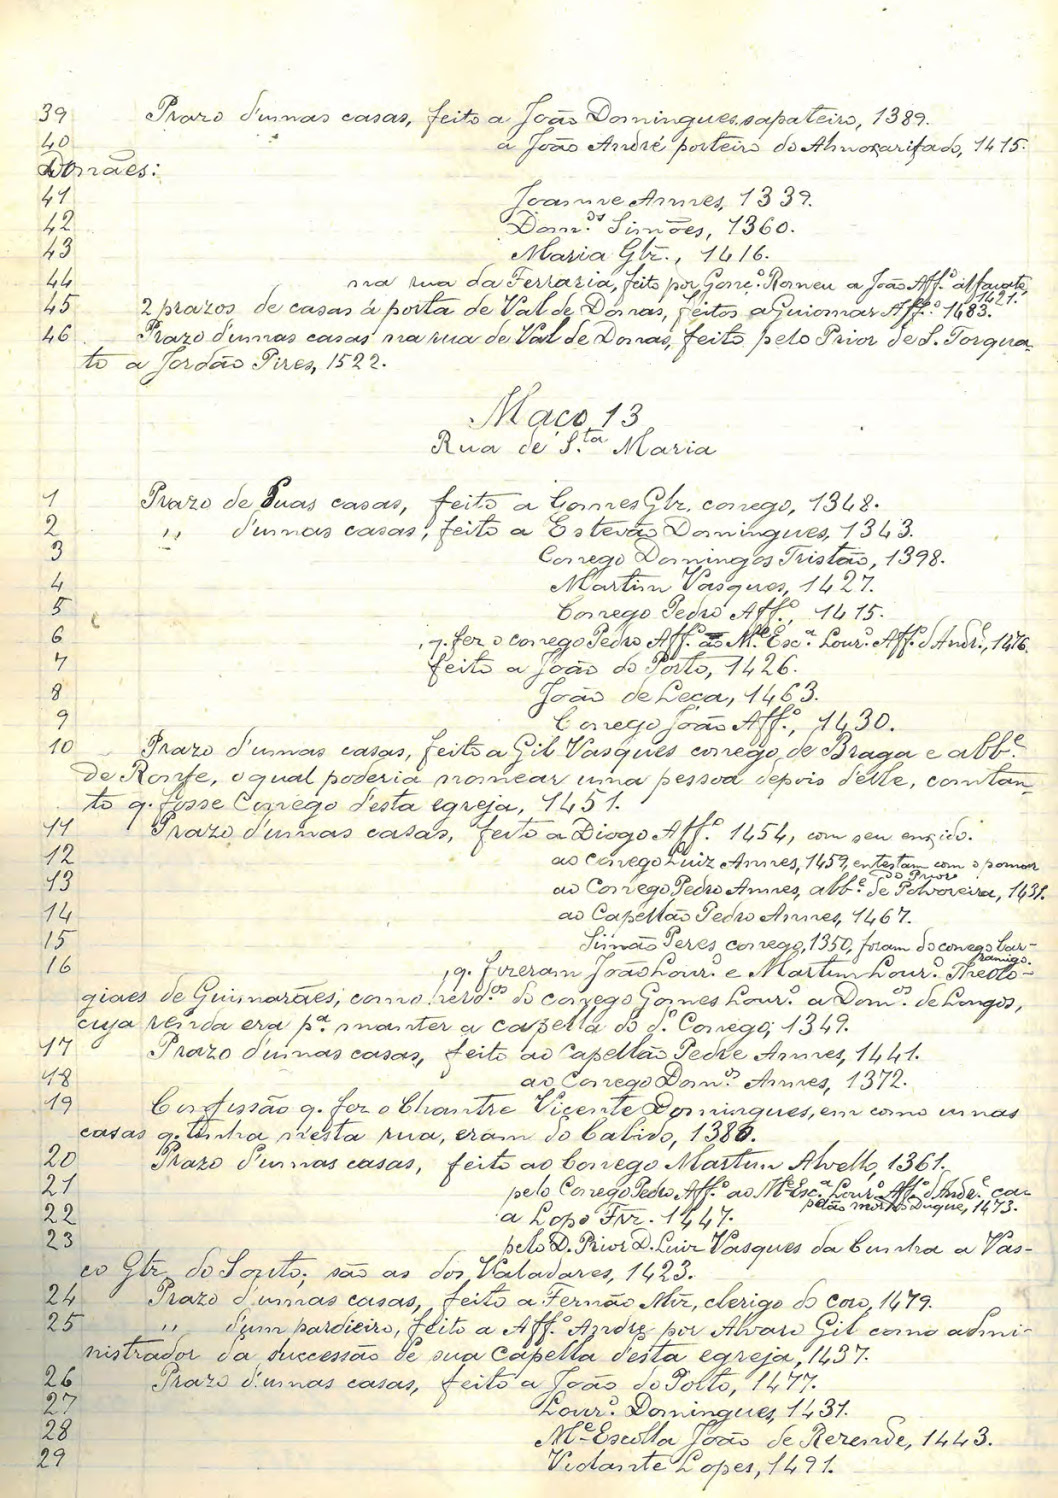 39 Prazo d'umas casas, feito a João Domingues sapateiro, 1389.
40 a João André porteiro do Almoxarifado, 1415.
Donães:
41 Joanne Annes, 1339.
42 Dom.os Simões, 1360.
43 Maria Glz., 1416.
44 na rua da Ferraria, feito por Gonç.º Romeu a João Aff.º alfaiate, 1421.
45 2 prazos de casas á porta de Val de Donas, feitos a Guiomar Aff.º 1483.
46 Prazo d'umas casas na rua de Val de Donas, feito pelo Prior de S. Torqua-
to a Jordão Pires, 1522.
Maço 13
Rua de S.ta Maria
1 Prazo de Duas casas, feito a Gomes Glz. conego, 1348.
2 ,, d'umas casas, feito a Estevão Domingues, 1343.
3 Conego Domingos Tristão, 1398.
4 Martim Vasques, 1427.
5 Conego Pedro Aff.º, 1415.
6 , q. fez o conego Pedro Aff.º ao M.e Esc.a Lour.º Aff.º d'Andr.e, 1476.
7 feito a João do Porto, 1426.
8 João de Leça, 1463.
9 Conego João Aff.º, 1430.
10 Prazo d'umas casas, feito a Gil Vasques conego de Braga e abb.e
de Ronfe, o qual poderia nomear uma pessoa depois d'elle, comtan-
to q. fosse Conego d'esta egreja, 1451.
11 Prazo d'umas casas, feito a Diogo Aff.º 1454, com seu enxido.
12 ao Conego Luiz Annes, 1459, entestam com o pomar do Prior
13 ao Conego Pedro Annes, abb.e de Polvoreira, 1431.
14 ao Capellão Pedro Annes, 1467.
15 Simão Peres conego, 1350, foram do conego Bar-
ramigo.
16 , q. fizeram João Lour.º e Martim Lour.º Theolo-
giaes de Guimarães, como herd.os do conego Gomes Lour.º a Dom.os de Longos,
cuja renda era p.a manter a capella do d.º Conego; 1349.
17 Prazo d'umas casas, feito ao Capellão Pedre Annes, 1441.
18 ao Conego Dom.os Annes, 1372.
19 Confissão q. fez o Chantre Vicente Domingues, em como umas
casas q. tinha n'esta rua, eram do Cabido, 1380.
20 Prazo d'umas casas, feito ao Conego Martim Alvello, 1361.
21 pelo Conego Pedro Aff.º ao M.e Esc.a Lour.º Aff.º d'Andr.e ca-
pelão mór do Duque, 1473.
22 a Lopo Frz. 1447.
23 pelo D. Prior D. Luiz Vasques da Cunha a Vas-
co Glz. do Souto; são as dos Valadares, 1423.
24 Prazo d'umas casas, feito a Fernão Miz, clerigo do coro, 1479.
25 ,, d'um pardieiro, feito a Aff.º Andrz por Alvaro Gil como admi-
nistrador da successão de sua Capella d'esta egreja, 1437.
26 Prazo d'umas casas, feito a João do Porto, 1477.
27 Lour.º Domingues, 1431.
28 M.e-Escolla João de Rezende, 1443.
29 Violante Lopes, 1491.